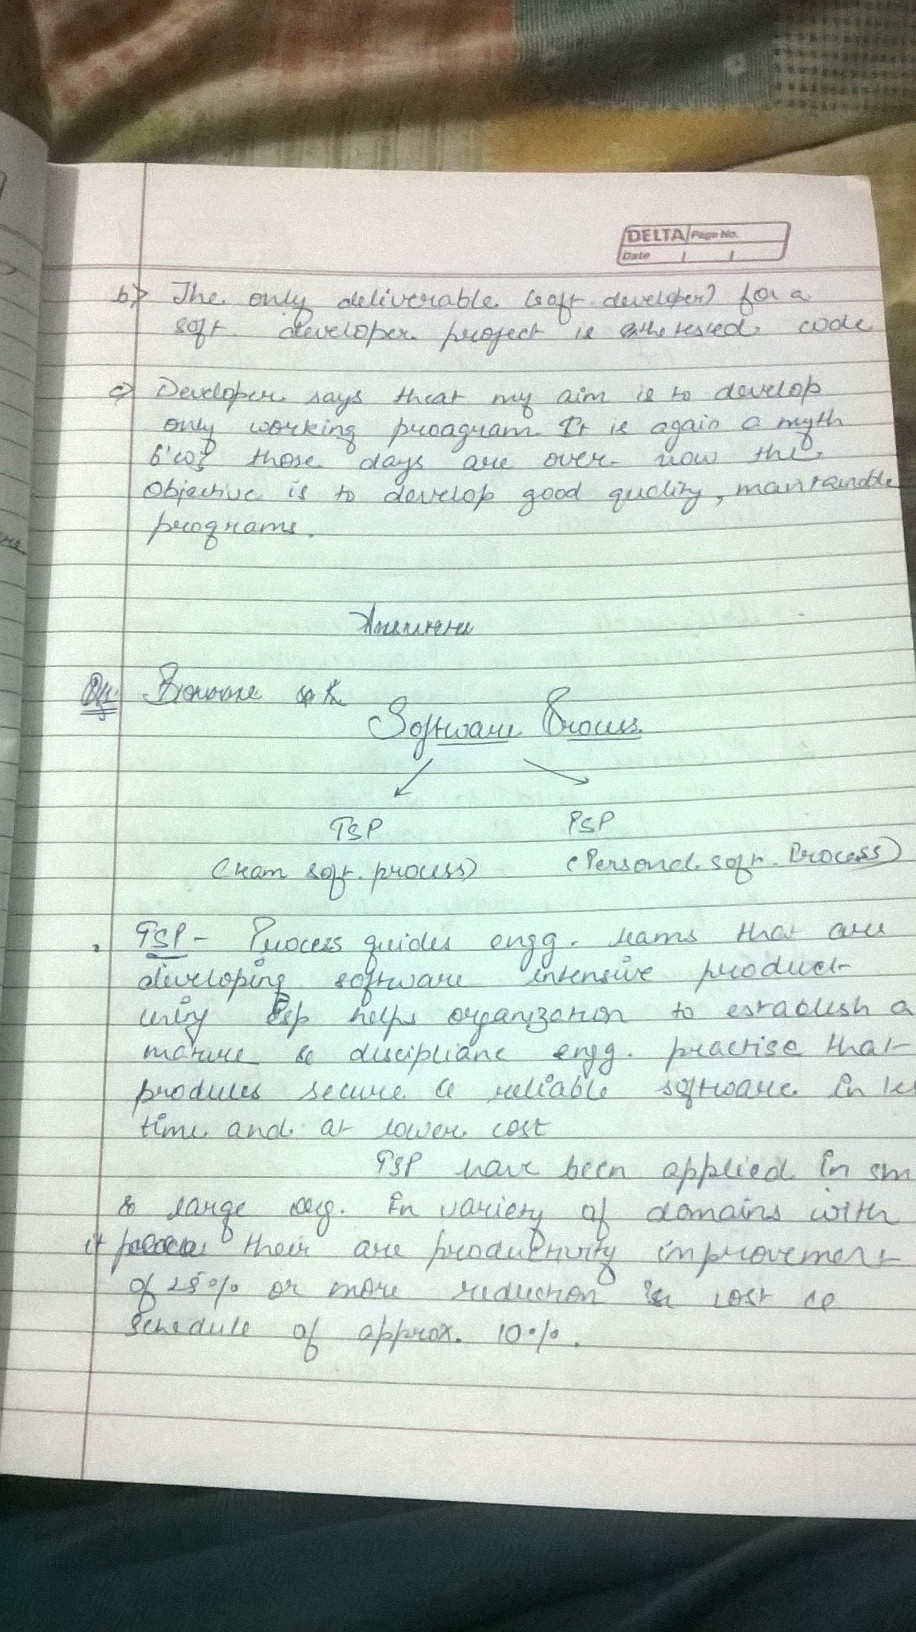 DELTA Page No.
Date
b) The only deliverable (soft. developer) for a
soft. developer project is the tested code
c) Developer says that my aim is to develop
only working proagram. It is again a myth
b'coz those days are over. now the
objective is to develop good quality, maintainable
programs.
Answers
Software Process
TSP PSP
(team soft. process) (Personal soft. Process)
TSP - Process guides engg. teams that are
developing software intensive product
using tsp helps organization to establish a
mature & discipliane engg. practise that
produces secure & reliable software in les
time and at lower cost
TSP have been applied in sm
& large org. in variety of domains with
it their are productivity improvement
of 25% or more reduction in cost &
schedule of approx. 10%.